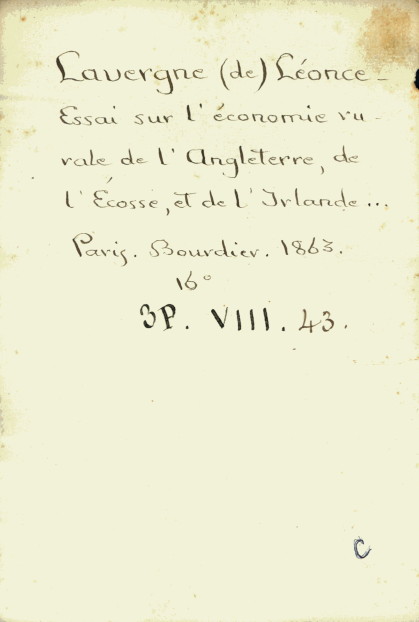 Lavergne (de) Léonce -
Essai sur l'économie ru -
rale de l'Angleterre, de
l'Écosse, et de l'Irlande...
Paris. Bourdier. 1863.
16°
3P. VIII. 43.
C